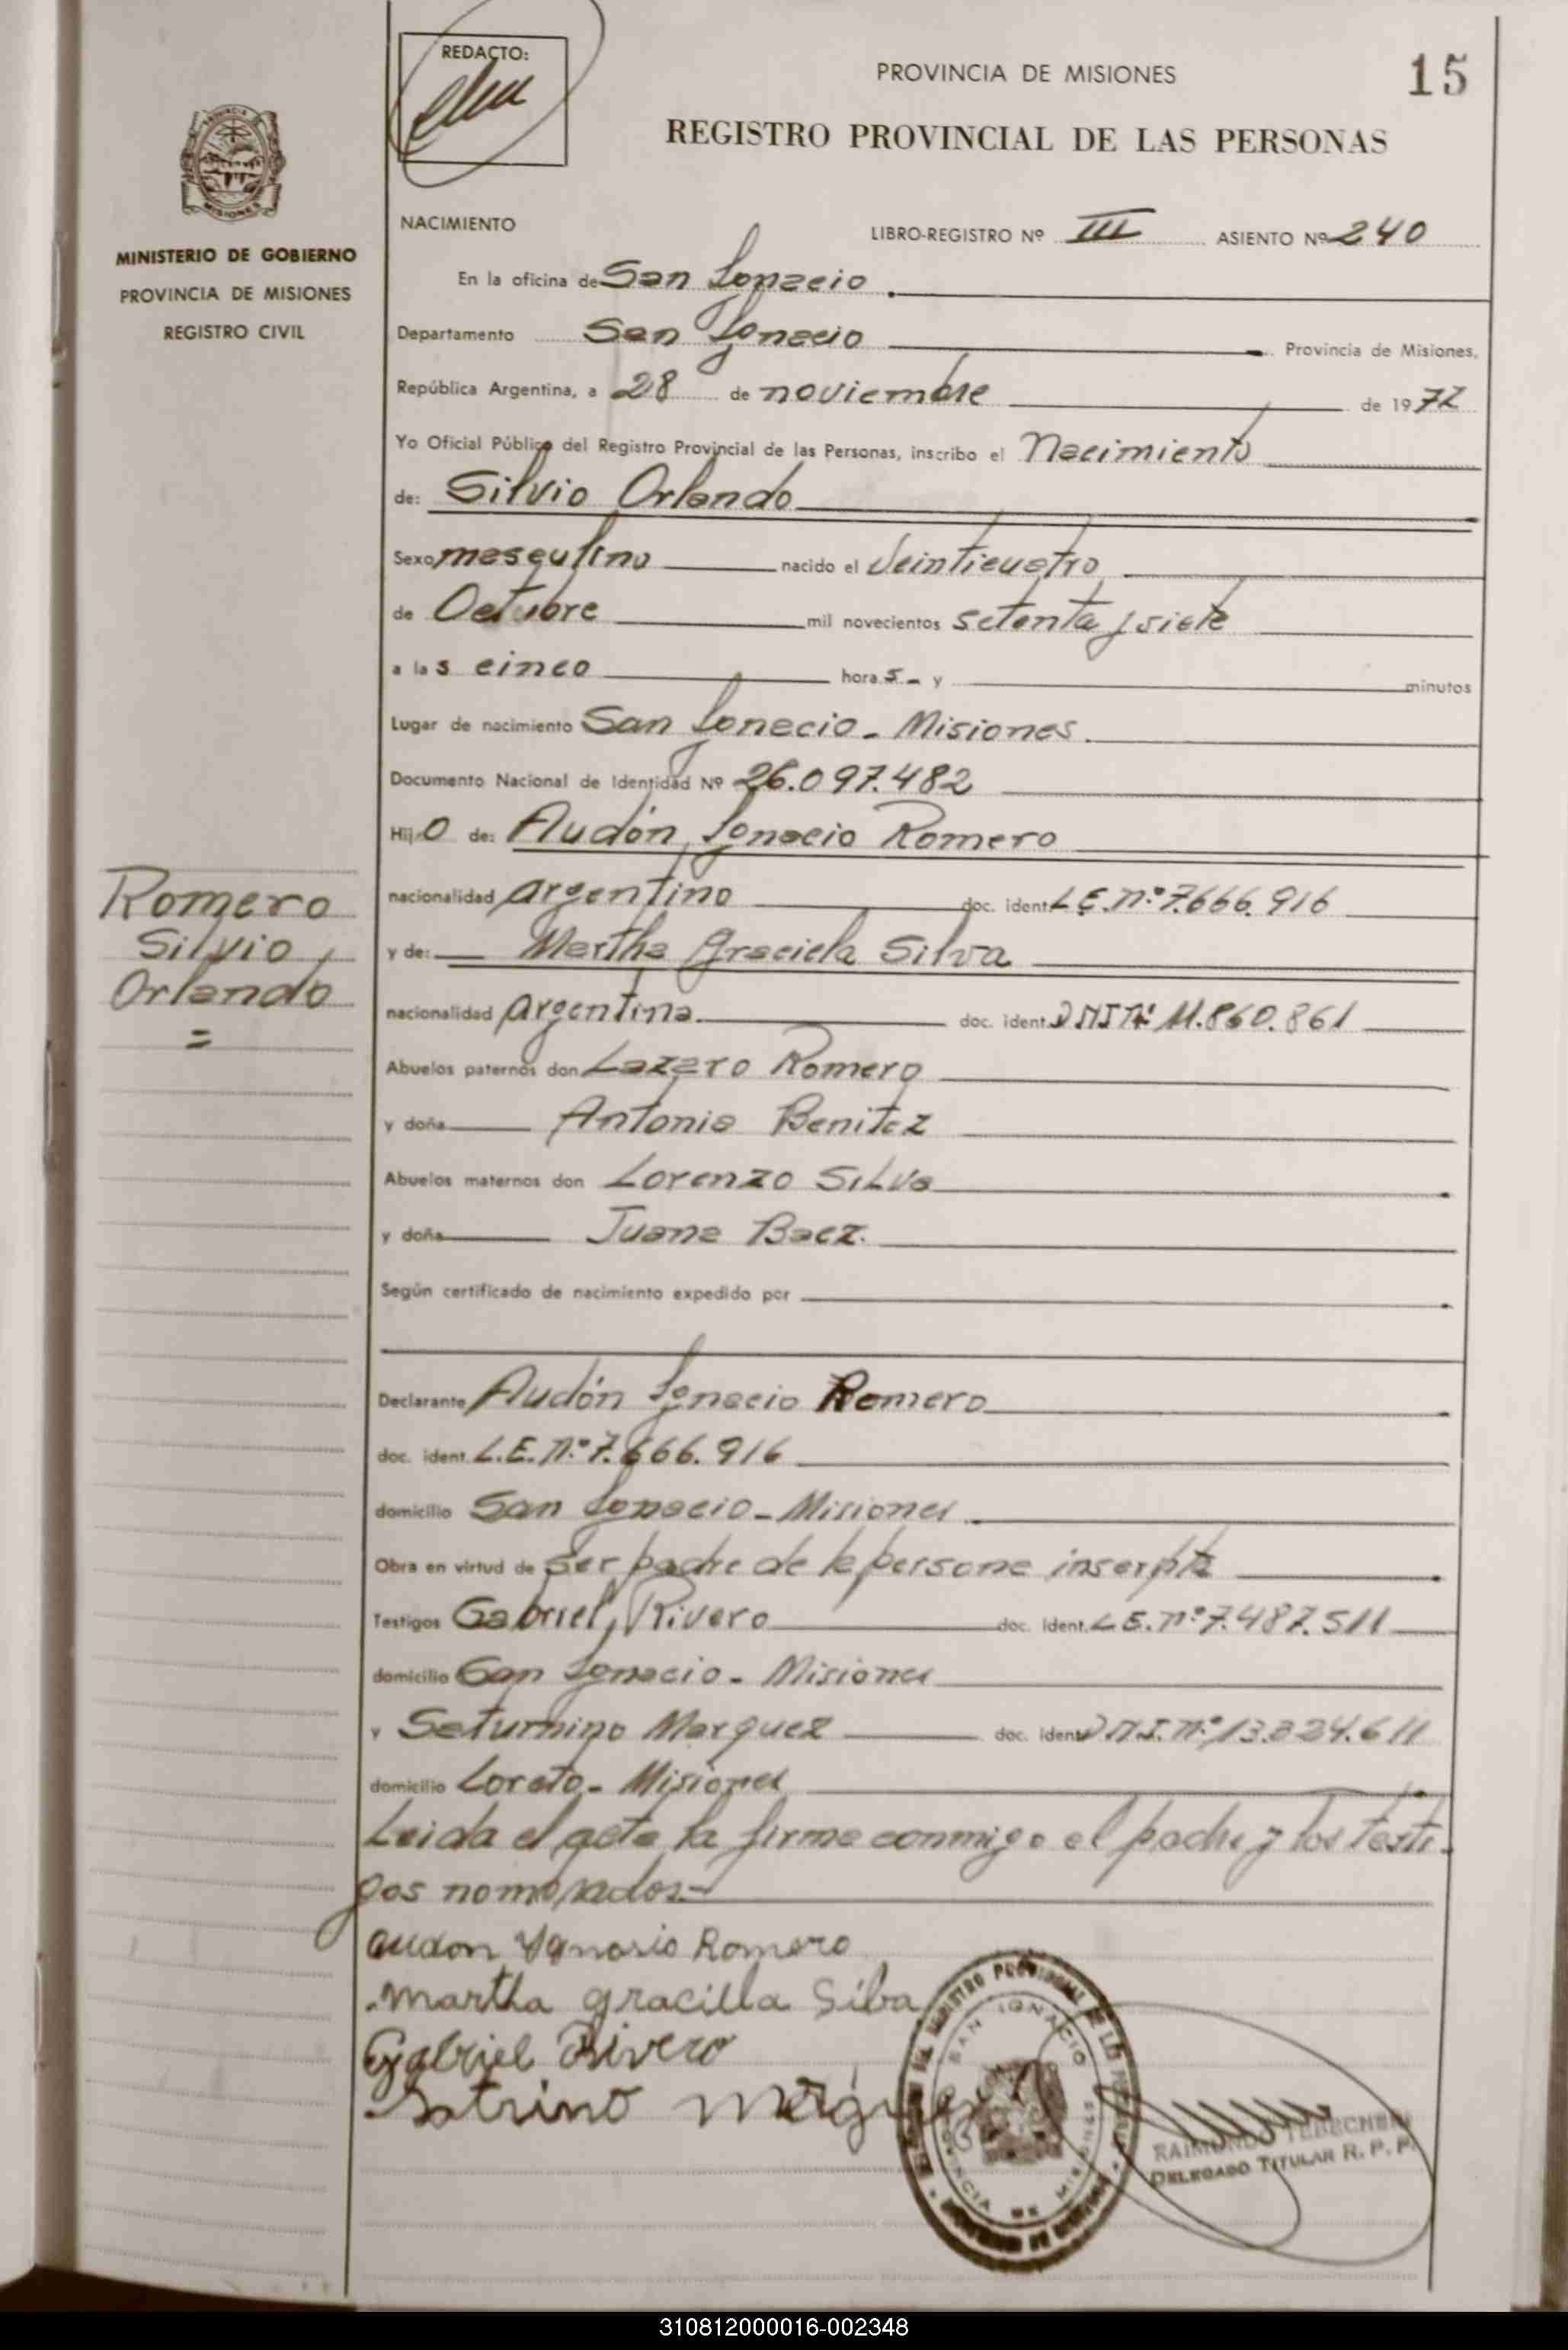 REDACTO:
PROVINCIA DE MISIONES
15
REGISTRO PROVINCIAL DE LAS PERSONAS
MISIONES
MINISTERIO DE GOBIERNO
PROVINCIA DE MISIONES
REGISTRO CIVIL
NACIMIENTO
LIBRO-REGISTRO Nº III ASIENTO Nº 240
En la oficina de San Ignacio.
Departamento San Ignacio Provincia de Misiones,
República Argentina, a 28 de noviembre de 1977
Yo Oficial Público del Registro Provincial de las Personas, inscribo el Nacimiento
de: Silvio Orlando
Sexo masculino nacido el Veinticuatro
de Octubre mil novecientos setenta y siete
a las cinco horas - y minutos
Lugar de nacimiento San Ignacio - Misiones.
Documento Nacional de Identidad Nº 26.097.482
Hijo de: Audón Ignacio Romero
nacionalidad argentino doc. ident. L.E. n.º 7.666.916
Romero
Silvio
Orlando
=
y de: Martha Graciela Silva
nacionalidad argentina. doc. ident. DNI Nº 11.860.861
Abuelos paternos don Lazaro Romero
y doña Antonia Benitez
Abuelos maternos don Lorenzo Silva
y doña Juana Baez.
Según certificado de nacimiento expedido por
Declarante Audón Ignacio Romero
doc. ident. L.E. n.º 7.666.916
domicilio San Ignacio - Misiones
Obra en virtud de ser padre de la persona inscripta
Testigos Gabriel Rivero doc. ident. L.E. nº 7.487.511
domicilio San Ignacio - Misiones
y Saturnino Marquez doc. ident. D.N.I. n.º 13.824.611
domicilio Loreto - Misiones
Leida el acta la firma conmigo el padre y los testi-
gos nombrados.-
audon Ygnasio Romero
martha gracilla Silba
Gabriel Rivero
Satrino
SAN IGNACIO
RAIMUNDO
DELEGADO TITULAR R. P. P.
310812000016-002348